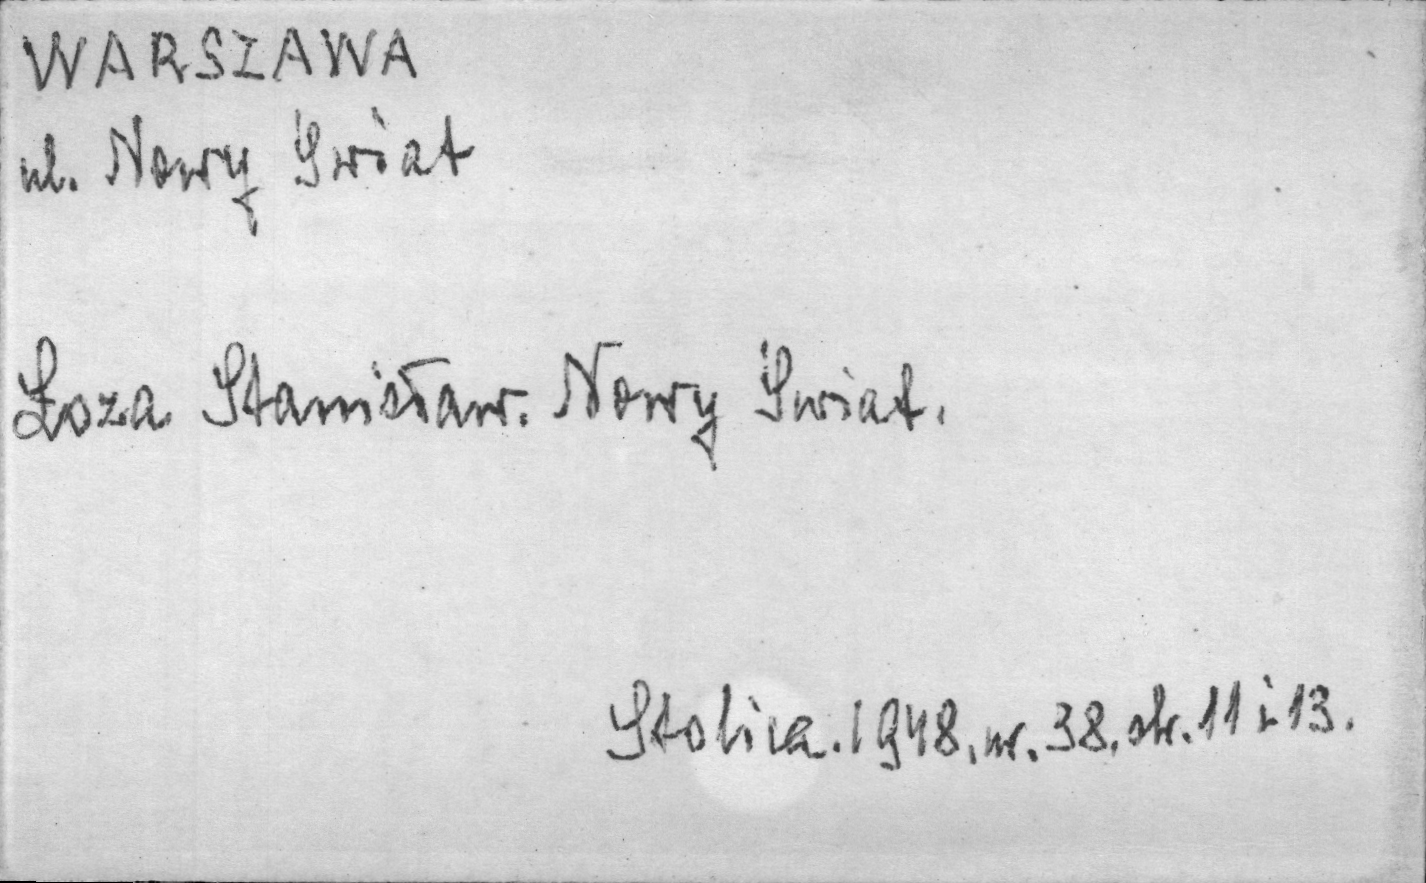 WARSZAWA
ul. Nowy Świat
Łoza Stanisław. Nowy Świat.
Stolica. 1948, nr. 38, str. 11 i 13.